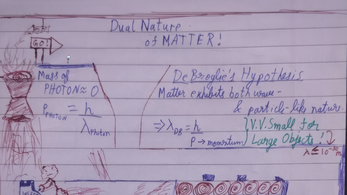 GO!
Dual Nature
of MATTER!
Mass of
PHOTON ≈ 0
P_PHOTON = h/λ_PHOTON
De Broglie's Hypothesis
Matter exhibits both wave-
& particle-like nature.
⇒ λ_DB = h/P → momentum
} V.V. Small for
Large Objects!